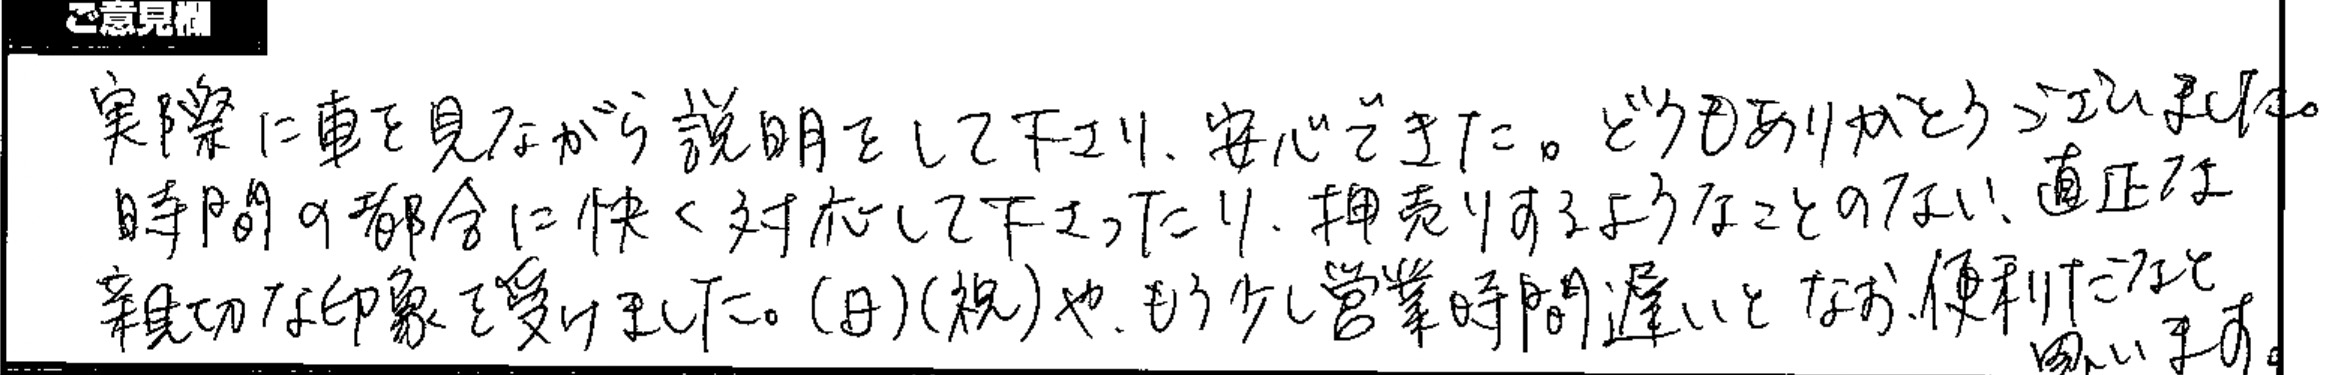 ご意見欄
実際に車を見ながら説明をして下さり、安心できた。どうもありがとうございました。
時間の都合に快く対応して下さったり、押売りするようなことのない、直正な
親切な印象を受けました。(日)(祝)や、もう少し営業時間遅いと なお、便利だなと
思います。